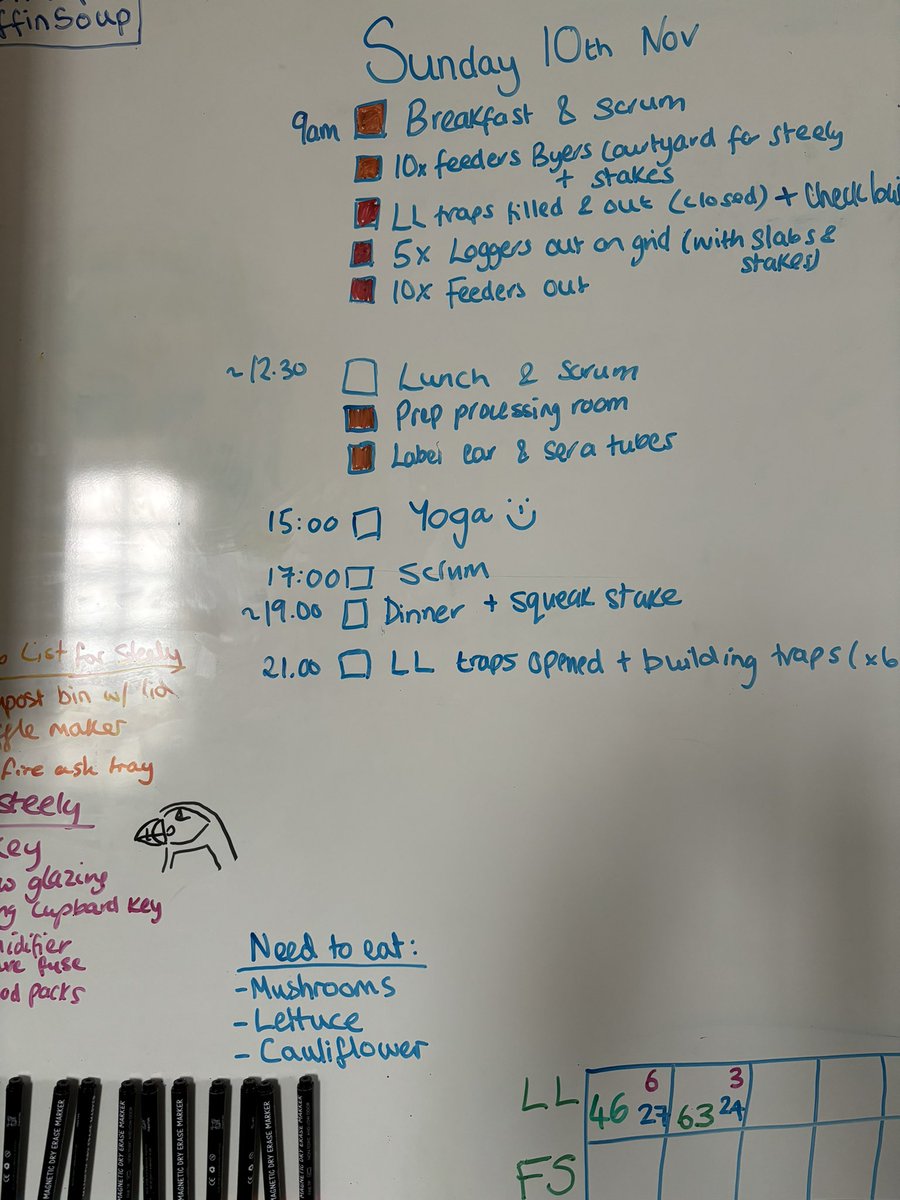 ffinSoup
Sunday 10th Nov
9am Breakfast & scrum
10x feeders Byers Courtyard for steely
+ stakes
LL traps filled & out (closed) + Check
5x Loggers out on grid (with slabs &
stakes)
10x Feeders out
~12.30 Lunch & scrum
Prep processing room
Label ear & sera tubes
15:00 Yoga
17:00 Scrum
~19.00 Dinner + squeak stake
21.00 LL traps opened + building traps (x6
List for Steely
post bin w/ lid
maker
fire ash tray
steely
key
glazing
cupboard key
midifier
fuse
packs
Need to eat:
- Mushrooms
- Lettuce
- Cauliflower
LL 46 6 27 63 3 24
FS
MAGNETIC DRY ERASE MARKER
MAGNETIC DRY ERASE MARKER
MAGNETIC DRY ERASE MARKER
MAGNETIC DRY ERASE MARKER
MAGNETIC DRY ERASE MARKER